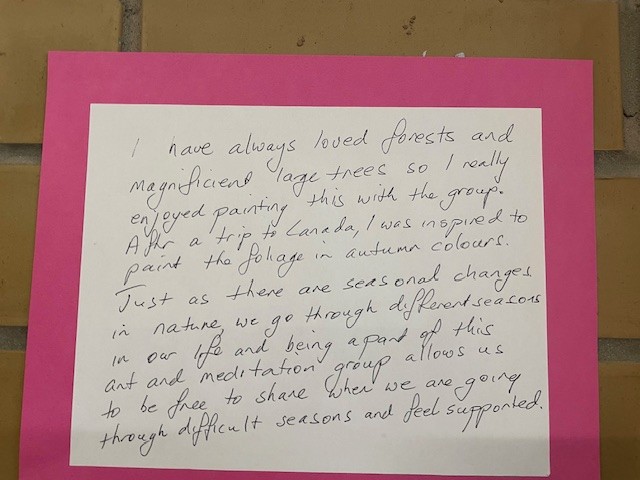 I have always loved forests and
magnificient large trees so I really
enjoyed painting this with the group.
After a trip to Canada, I was inspired to
paint the foliage in autumn colours.
Just as there are seasonal changes
in nature, we go through different seasons
in our life and being a part of this
art and meditation group allows us
to be free to share when we are going
through difficult seasons and feel supported.